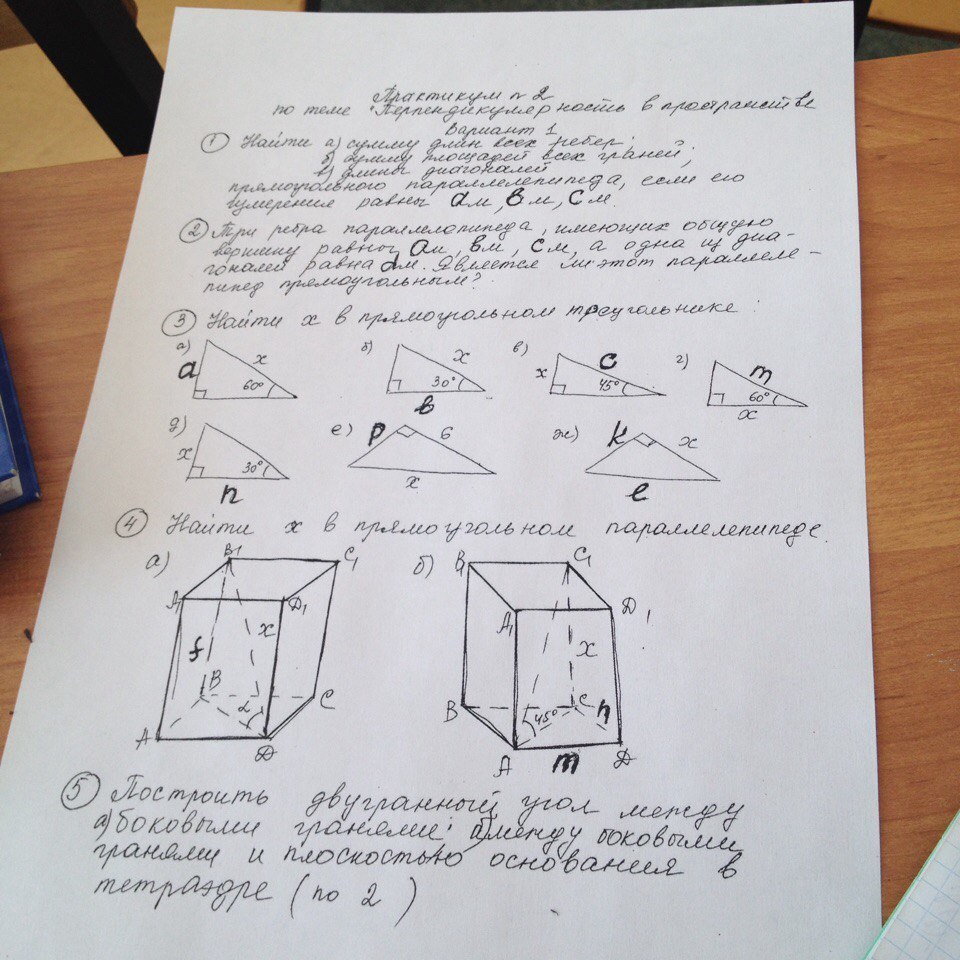 Практикум n 2
по теме "Перпендикулярность в пространстве
Вариант 1
1 Найти а) сумму длин всех ребер;
б) сумму площадей всех граней;
в) длины диагоналей
прямоугольного параллелепипеда, если его
измерения равны ам, вм, см.
2 Три ребра параллелопипеда, имеющих общую
вершину равны, ам, вм, см, а одна из диа-
гоналей равна dм. Является ли этот параллеле-
пипед прямоугольным?
3 Найти x в прямоугольном треугольнике:
а) a x 60°
б) x 30° в
в) x c 45°
г) m 60° x
д) x 30° n
е) p 6 x
ж) k x e
4 Найти x в прямоугольном параллелепипеде.
а) B1 C1 A1 D1 f x B C α A D
б) B1 C1 A1 D1 x B C 45° n A m D
5 Построить двугранный угол между
а) боковыми гранями; б) между боковыми
гранями и плоскостью основания в
тетраэдре (по 2)